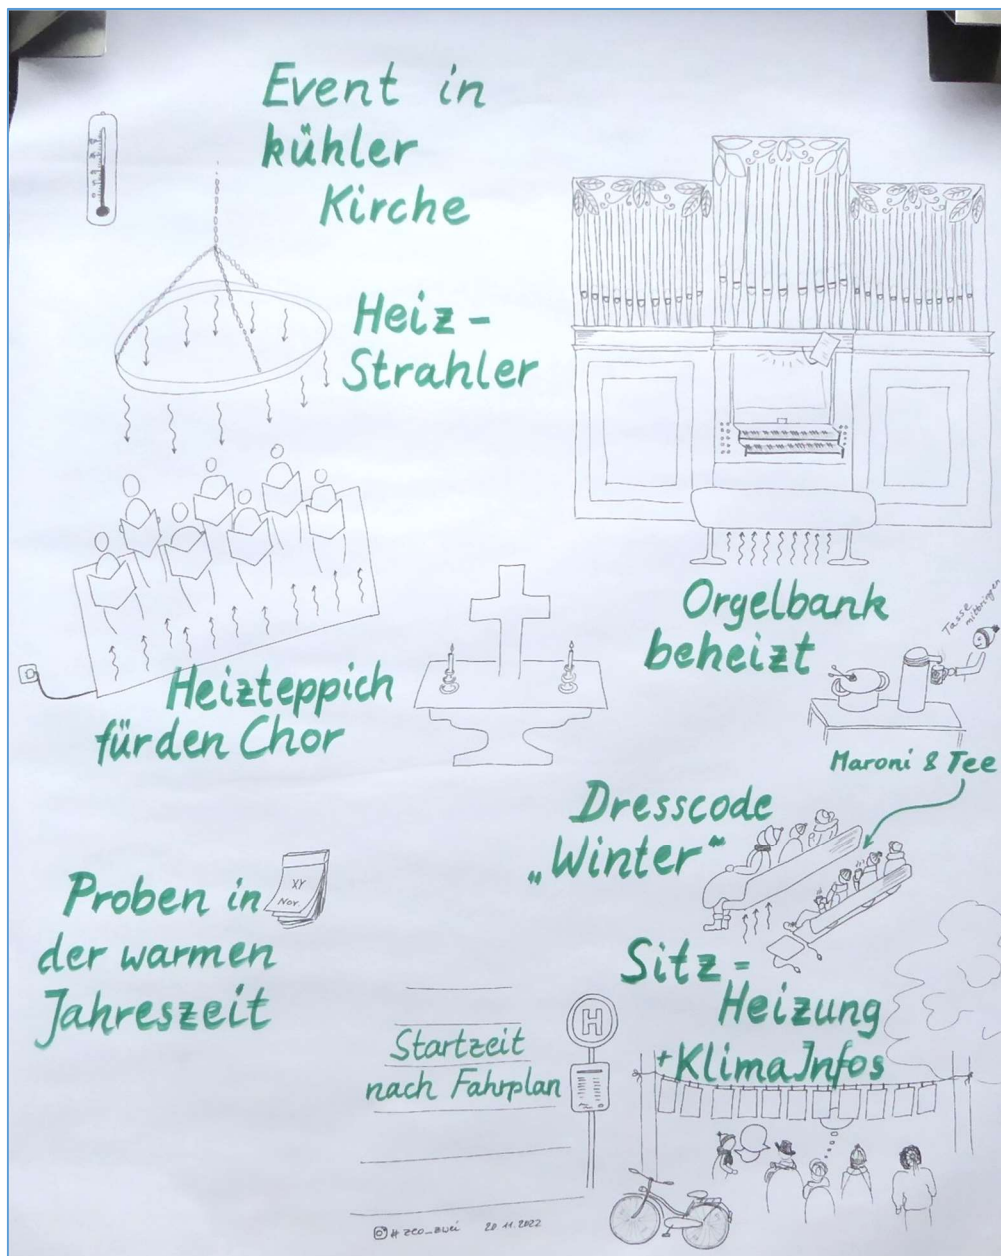 Event in
kühler
Kirche
Heiz-
Strahler
Orgelbank
beheizt
Tasse
mitbringen
Heizteppich
für den Chor
Maroni & Tee
Dresscode
„Winter“
XY
Nov.
Proben in
der warmen
Jahreszeit
Sitz=
Heizung
+KlimaInfos
H
Startzeit
nach Fahrplan
20 11.2022